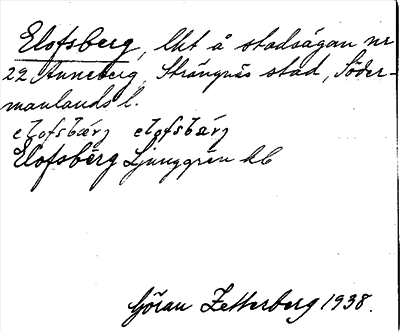 Elofsberg, lht å stadsägan nr
22 Anneberg, Strängnäs stad, Söder-
manlands l.
elofsbærj elofsbærj
Elofsberg Ljunggren kb
Göran Zetterberg 1938.